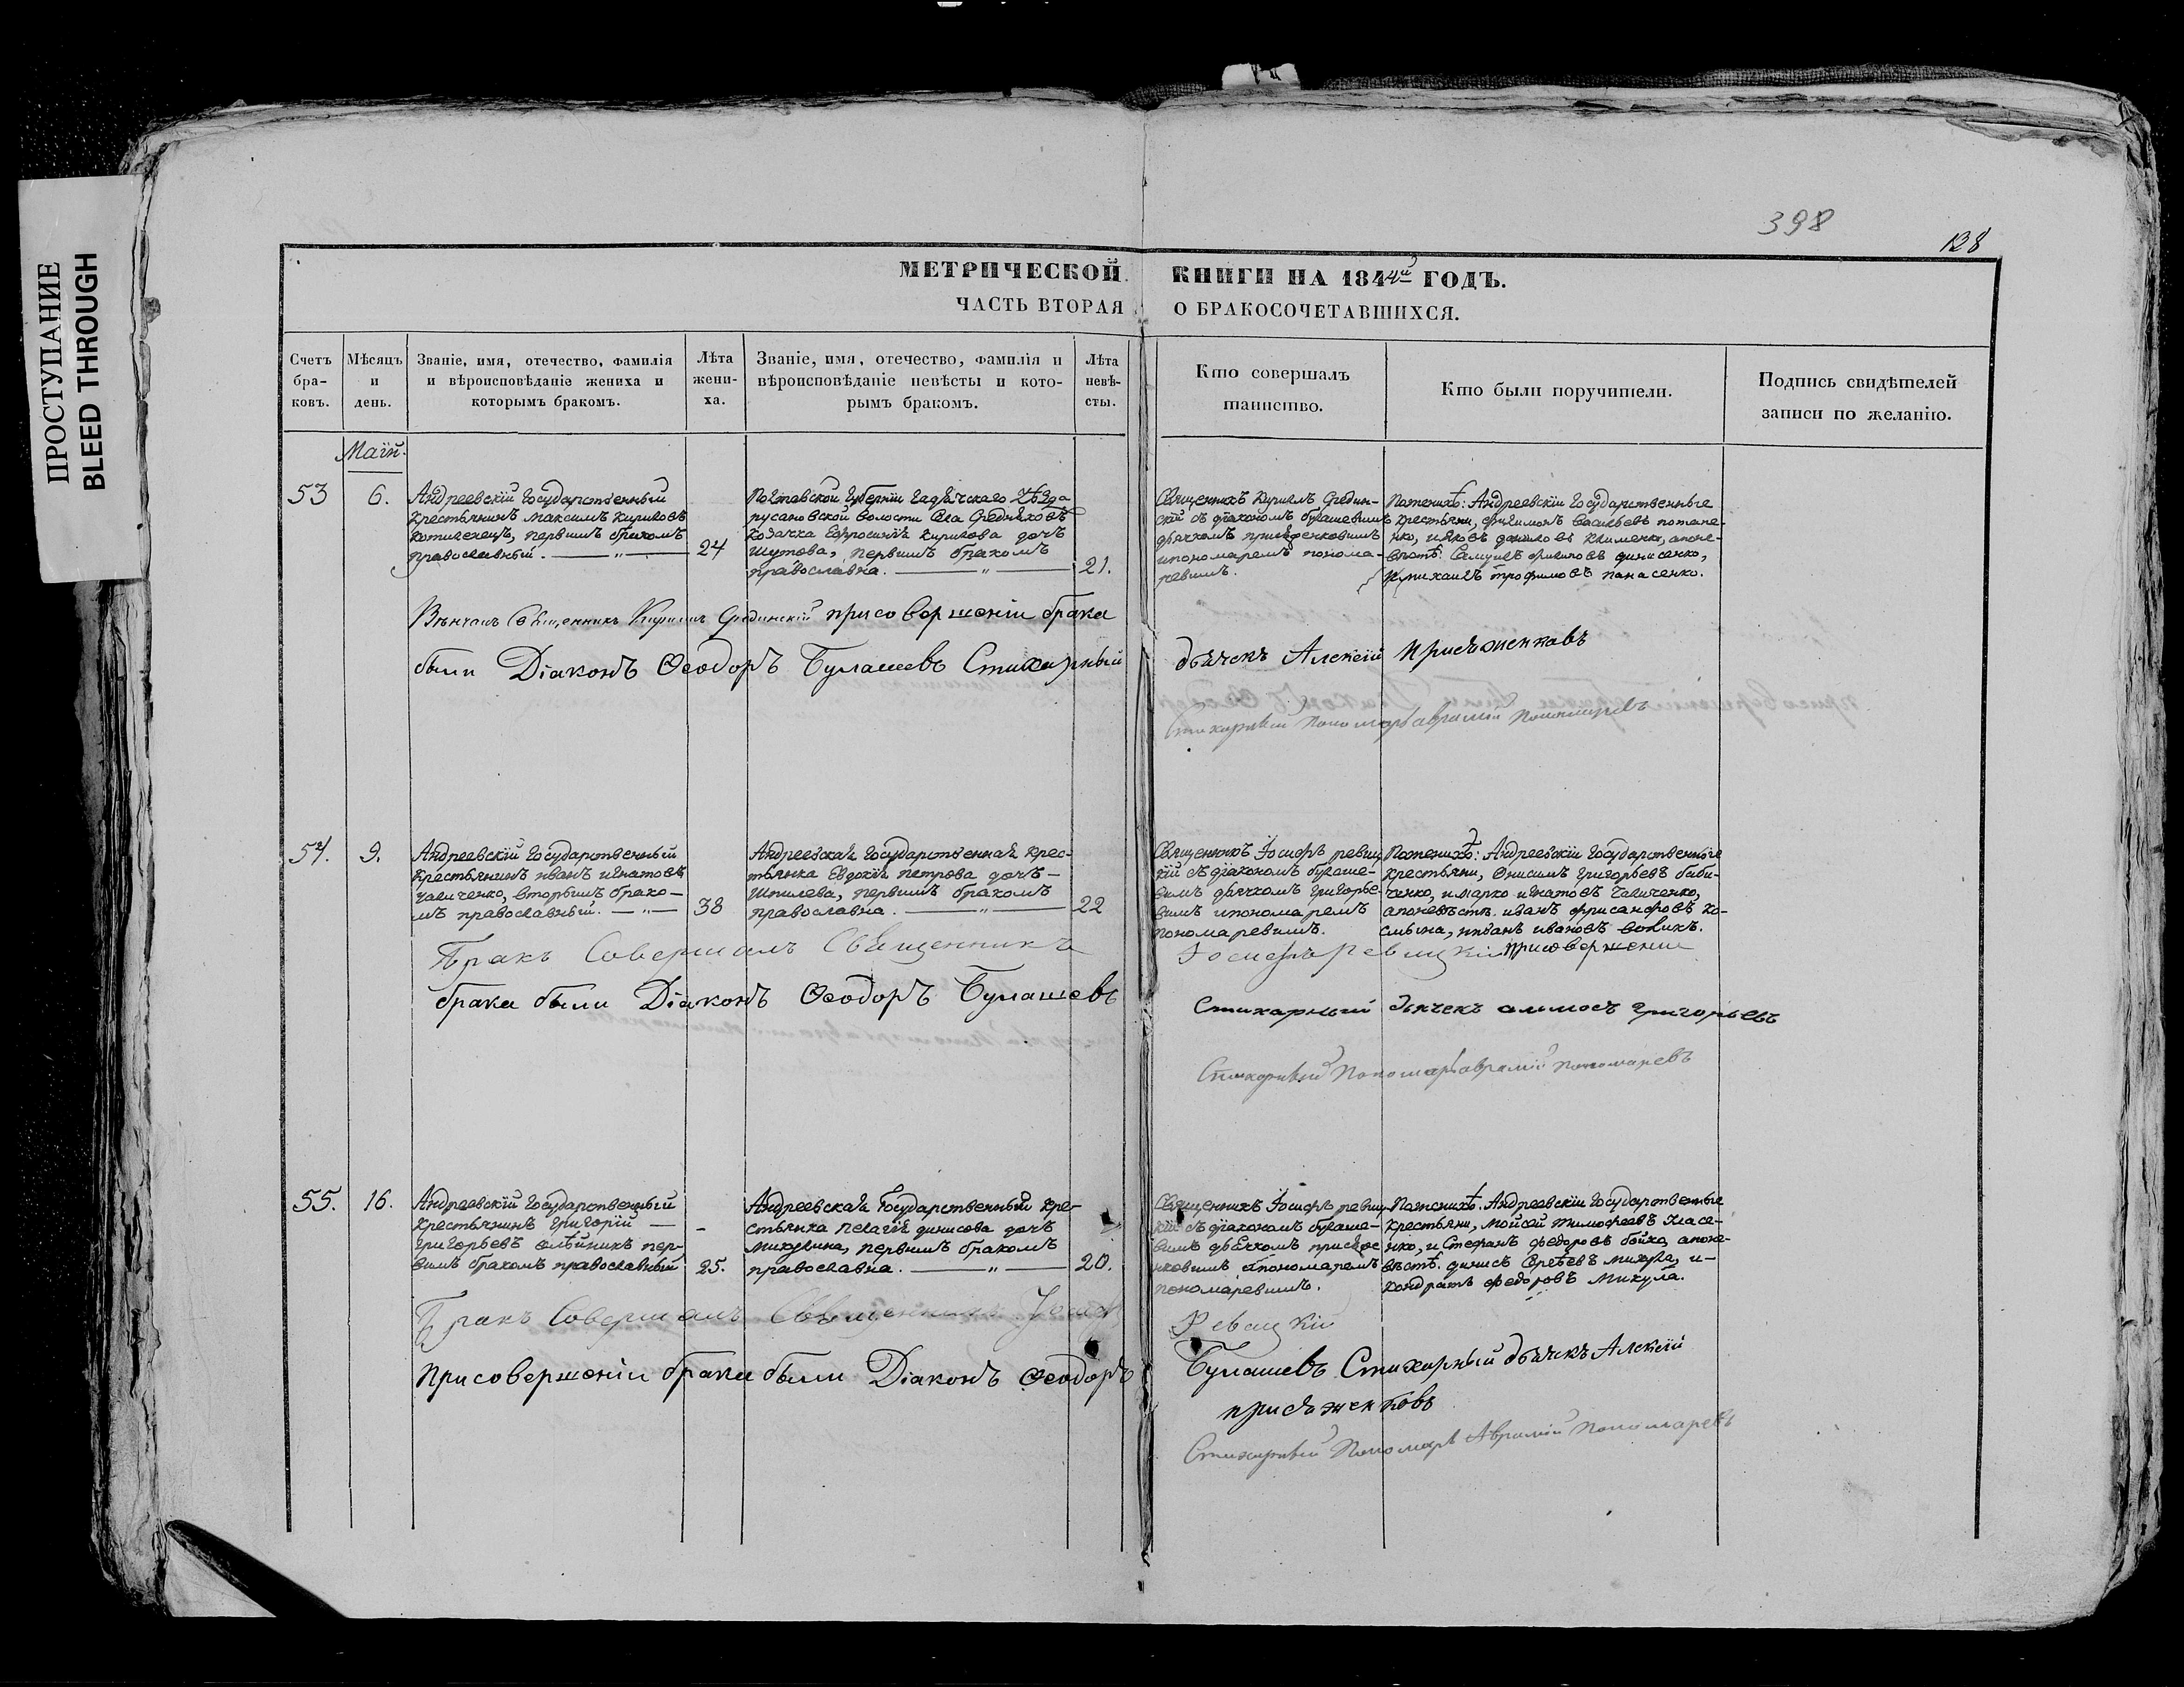 ПРОСТУПАНИЕ
BLEED THROUGH
398
128
МЕТРИЧЕСКОЙ КНИГИ НА 1844й ГОДЪ.
ЧАСТЬ ВТОРАЯ О БРАКОСОЧЕТАВШИХСЯ.
Счетъ бра-ковъ.
Мѣсяцъ и день.
Званіе, имя, отечество, фамилія и вѣроисповѣданіе жениха и которымъ бракомъ.
Лѣта жени-ха.
Званіе, имя, отечество, фамилія и вѣроисповѣданіе невѣсты и кото-рымъ бракомъ.
Лѣта невѣ-сты.
Кто совершалъ таинство.
Кто были поручители.
Подпись свидѣтелей записи по желанію.
Маій.
53
6.
Андреевскій государственный
крестьянинъ максимъ кириловъ
первимъ бракомъ
православный.
24
Полтавской губерніи гадячского уѣзда
русановской волости села
козачка Ефросинія кирилова дочъ
Шутова, первимъ бракомъ
православна.
21.
Священникъ Кирилъ Средин-
скій съ діакономъ булашевимъ
дьячкомъ присѣженковимъ
ипономаремъ понома-
ревимъ.
Поженихѣ: Андреевскіи государственные
крестьяни, филимонъ васильевъ потапе-
нко, ияковъ даниловъ клименко, апоне-
вѣстѣ: Самуилъ филиповъ динисенко,
имихаилъ трофимовъ панасенко.
Вѣнчалъ Священникъ Кирилъ Срединскій присовершеніи брака
были Діаконъ Ѳеодоръ Булашевъ Стихарный дьячекъ Алексій присяженковъ
Стихарный Пономарь аврамій пономаревъ
54.
9.
Андреевскій государственный
крестьянинъ иванъ игнатовъ
чаличенко, вторымъ брако-
мъ православный.
38
Андреевская государственная крес-
тьянка Евдокія петрова дочъ
Шпилева, первимъ бракомъ
православна.
22
Священникъ Іосифъ ревиц
кій съ діакономъ булаше-
вимъ дьячкомъ григорье-
вимъ ипономаремъ
пономаревимъ.
Поженихѣ: Андреевскіи государственные
крестьяни, Онисимъ григорьевъ биби-
ченко, имарко игнатовъ чаличенко,
апоневѣстѣ. иванъ фрисанфовъ ко-
иванъ ивановъ воликъ.
Бракъ Совершалъ Священникъ Іосифъ Ревицкій присовершеніи
брака были Діаконъ Ѳеодоръ Булашевъ
Стихарный дьячекъ аммосъ григорьевъ
Стихарный Пономарь аврамій пономаревъ
55.
16.
Андреевскій государственный
крестьянинъ григорій
григорьевъ олѣйникъ пер-
вимъ бракомъ православный
25.
Андреевская государственная кре-
стьянка пелагія динисова дочъ
Микулина, первимъ бракомъ
православна.
20.
Священникъ Іосифъ ревиц
кій съ діакономъ булаше-
вимъ дьячкомъ присяже
нковимъ ипономаремъ
пономаревимъ.
Поженихѣ. Андреевскіи государственные
крестьяни, Мойсей тимофеевъ Власе-
нко, и Стефанъ федоровъ бойко, апоне-
вѣстѣ. динисъ Сергѣевъ микула, и-
кондратъ федоровъ микула.
Бракъ Совершалъ Священникъ Іосифъ Ревицкій
присовершеніи брака были Діаконъ Ѳеодоръ Булашевъ Стихарный дьячекъ Алексій
присяженковъ
Стихарный Пономарь Аврамій пономаревъ